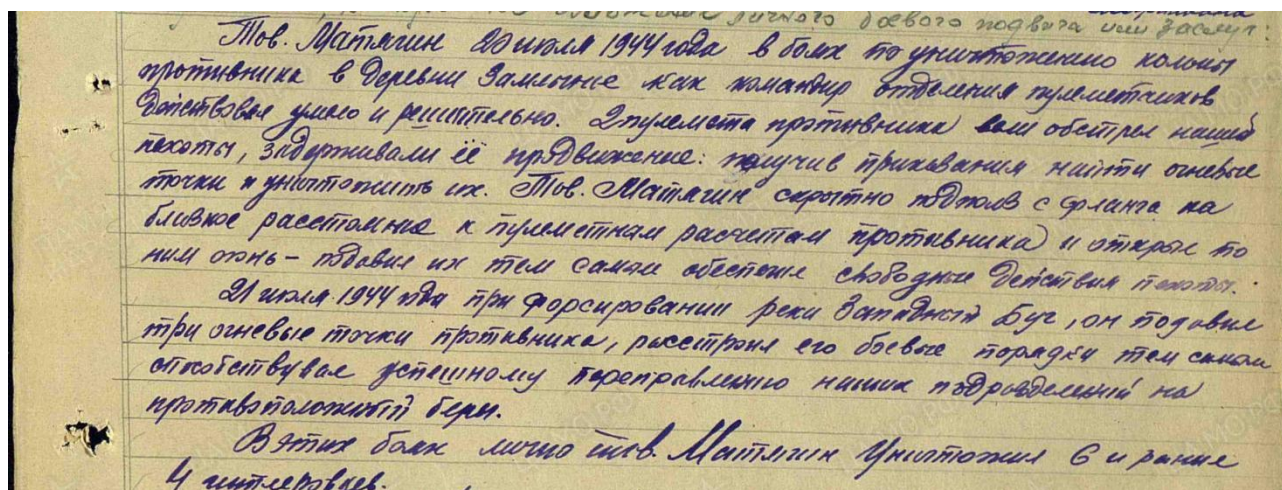 личного боевого подвига или заслуг:
Тов. Матягин 20 июля 1944 года в боях по уничтожению колоны
противника в деревни Замлынье как командир отделения пулеметчиков
действовал умело и решительно. 2 пулемета противника вели обстрел нашей
пехоты, задерживали её продвижение: получив приказания найти огневые
точки и уничтожить их. Тов. Матягин скрытно подполз с фланга на
близкое расстояние к пулеметным расчетам противника и открыл по
ним огонь – подавил их тем самым обеспечил свободные действия пехоты.
21 июля 1944 года при форсировании реки Западный Буг, он подавил
три огневые точки противника, расстроил его боевые порядки тем самым
способствовал успешному переправлению наших подразделений на
противоположный берег.
В этих боях лично тов. Матягин уничтожил 6 и ранил
4 гитлеровцев.